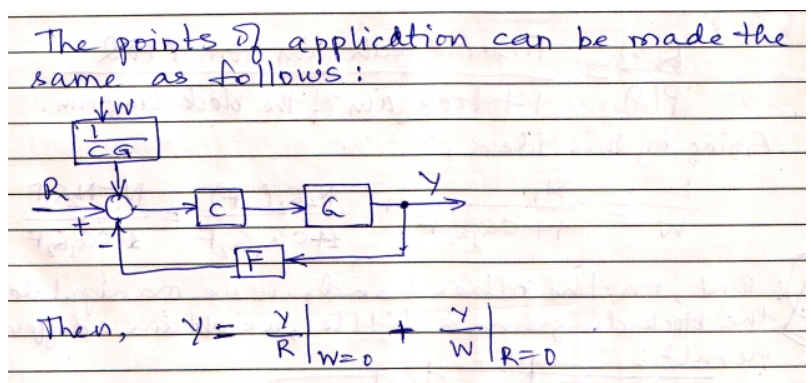 The points of application can be made the
same as follows :
W
1/CG
R
Y
+
C
G
-
F
Then, Y = Y/R |W=0 + Y/W |R=0